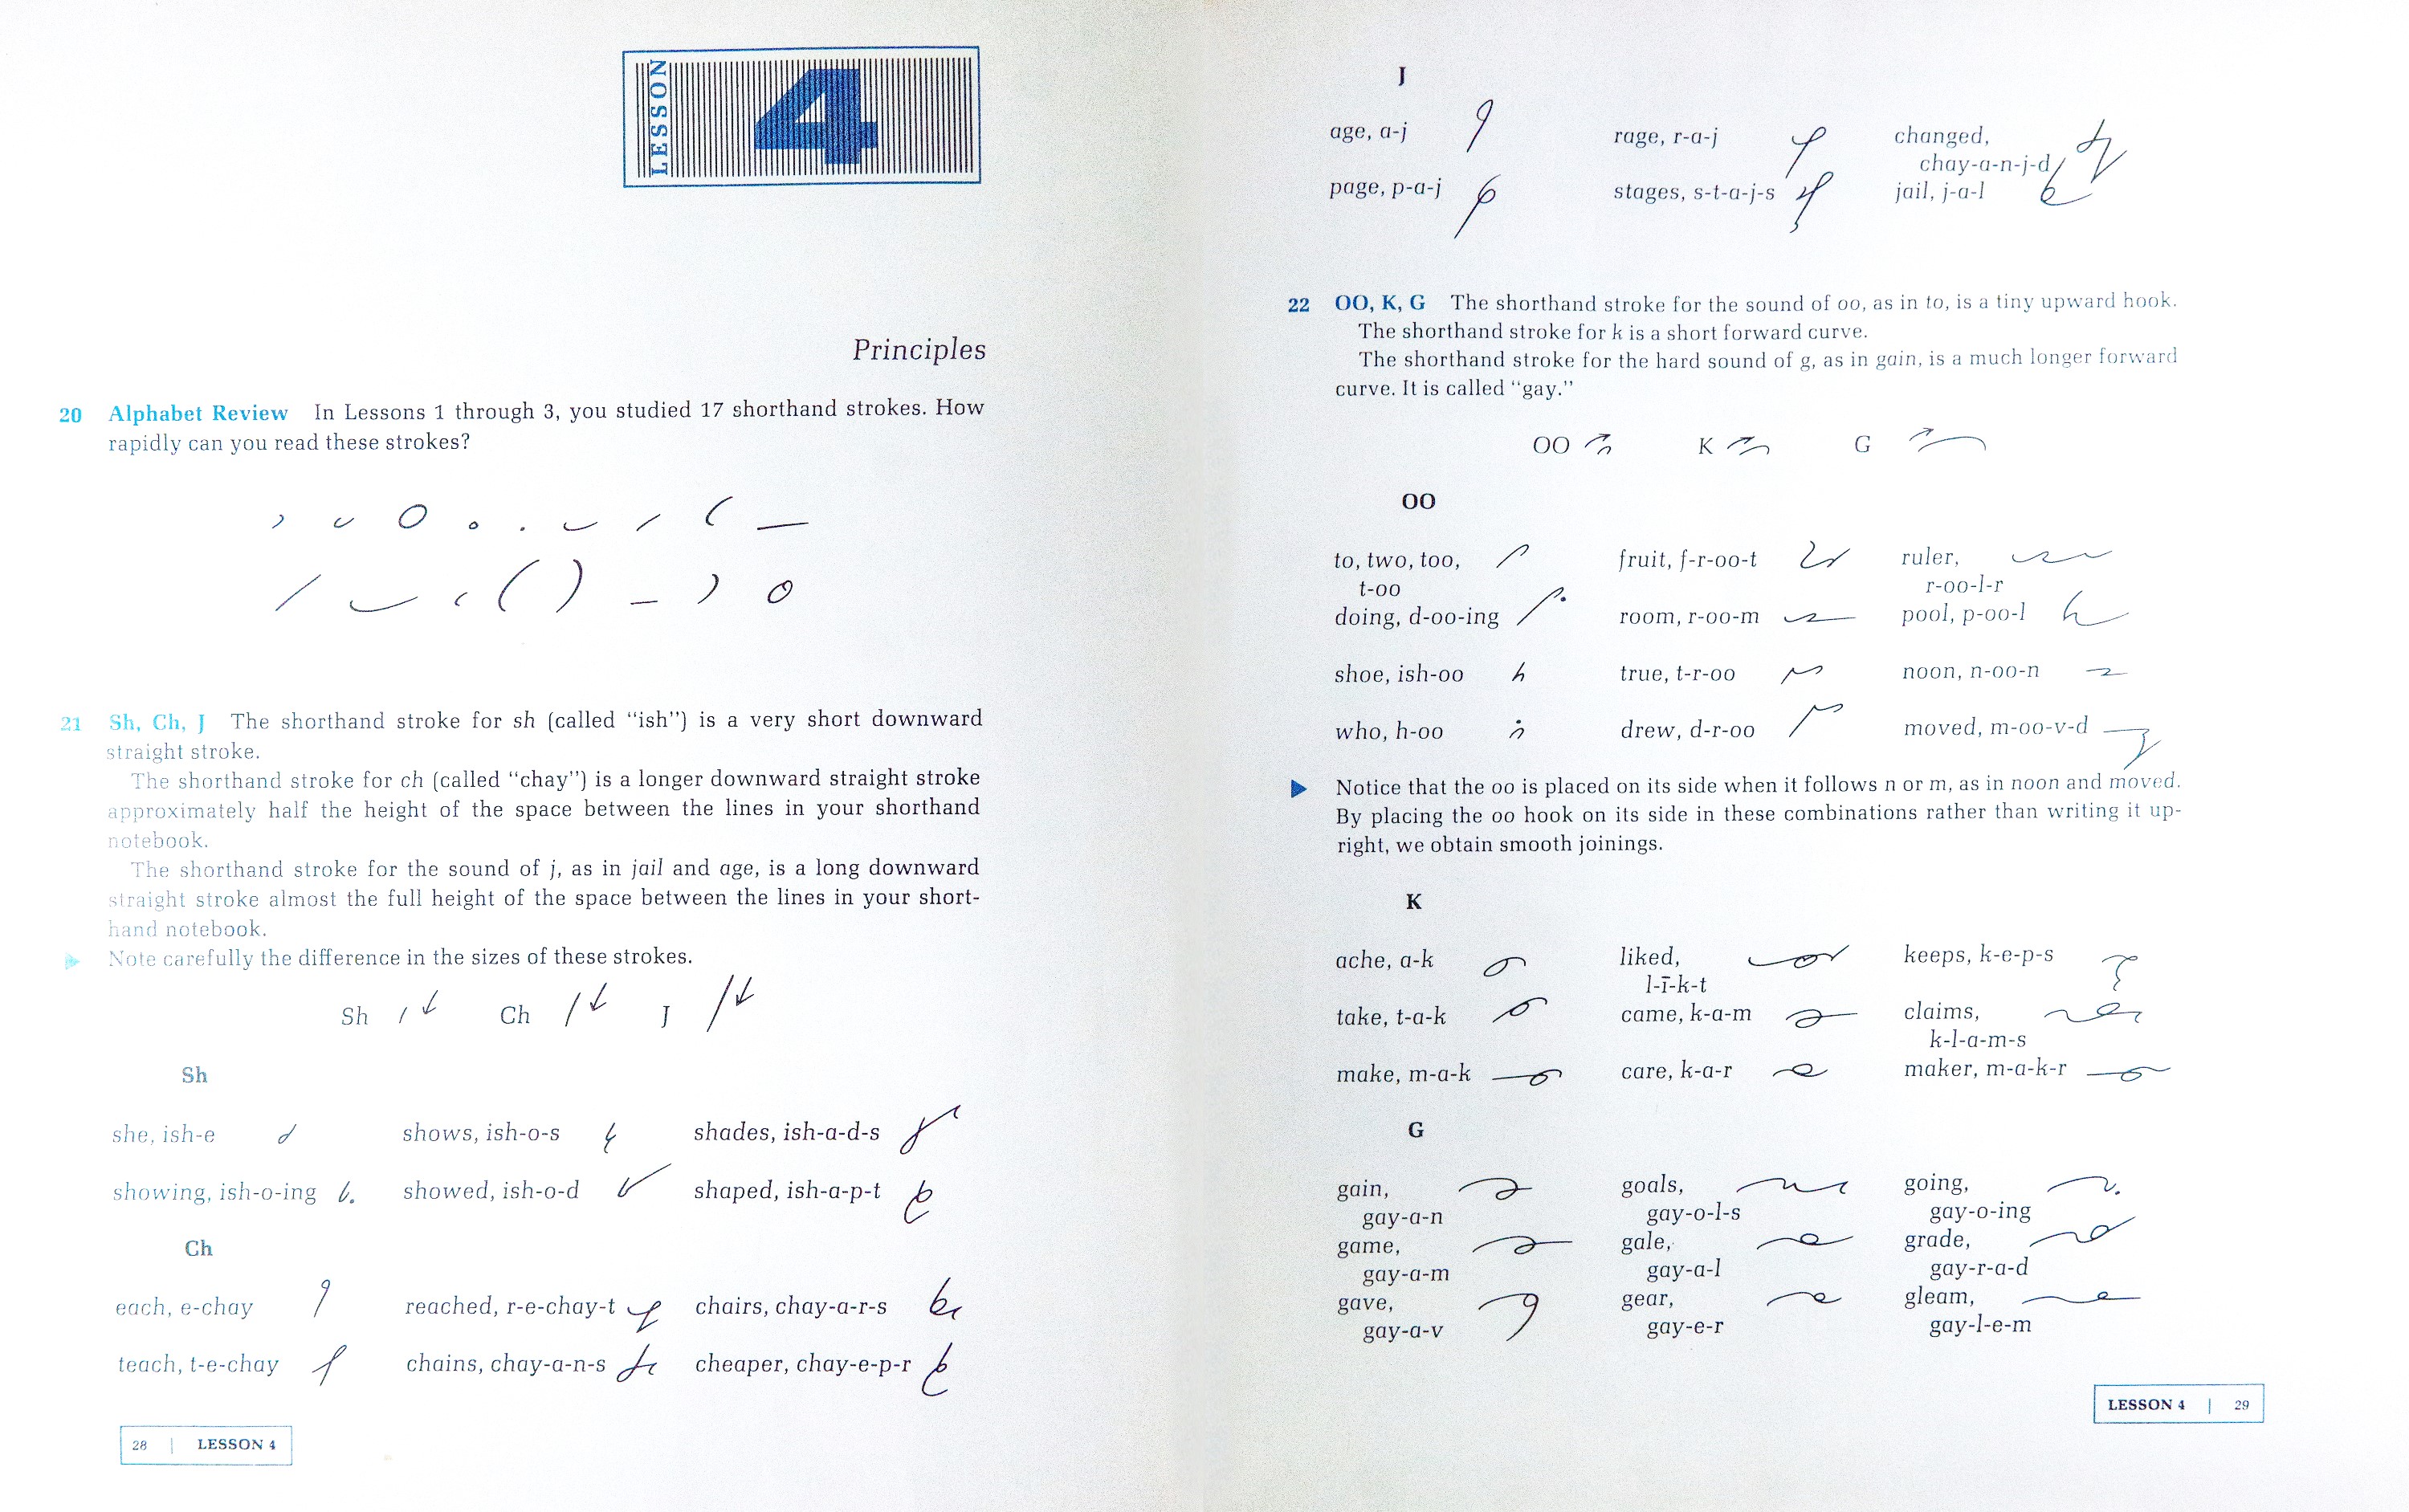 LESSON 4
Principles
20 Alphabet Review In Lessons 1 through 3, you studied 17 shorthand strokes. How
rapidly can you read these strokes?
21 Sh, Ch, J The shorthand stroke for sh (called “ish”) is a very short downward
straight stroke.
The shorthand stroke for ch (called “chay”) is a longer downward straight stroke
approximately half the height of the space between the lines in your shorthand
notebook.
The shorthand stroke for the sound of j, as in jail and age, is a long downward
straight stroke almost the full height of the space between the lines in your short-
hand notebook.
Note carefully the difference in the sizes of these strokes.
Sh Ch J
Sh
she, ish-e shows, ish-o-s shades, ish-a-d-s
showing, ish-o-ing showed, ish-o-d shaped, ish-a-p-t
Ch
each, e-chay reached, r-e-chay-t chairs, chay-a-r-s
teach, t-e-chay chains, chay-a-n-s cheaper, chay-e-p-r
28 | LESSON 4
J
age, a-j rage, r-a-j changed,
chay-a-n-j-d
page, p-a-j stages, s-t-a-j-s jail, j-a-l
22 OO, K, G The shorthand stroke for the sound of oo, as in to, is a tiny upward hook.
The shorthand stroke for k is a short forward curve.
The shorthand stroke for the hard sound of g, as in gain, is a much longer forward
curve. It is called “gay.”
OO K G
OO
to, two, too, fruit, f-r-oo-t ruler,
t-oo r-oo-l-r
doing, d-oo-ing room, r-oo-m pool, p-oo-l
shoe, ish-oo true, t-r-oo noon, n-oo-n
who, h-oo drew, d-r-oo moved, m-oo-v-d
Notice that the oo is placed on its side when it follows n or m, as in noon and moved.
By placing the oo hook on its side in these combinations rather than writing it up-
right, we obtain smooth joinings.
K
ache, a-k liked, keeps, k-e-p-s
l-ī-k-t
take, t-a-k came, k-a-m claims,
k-l-a-m-s
make, m-a-k care, k-a-r maker, m-a-k-r
G
gain, goals, going,
gay-a-n gay-o-l-s gay-o-ing
game, gale, grade,
gay-a-m gay-a-l gay-r-a-d
gave, gear, gleam,
gay-a-v gay-e-r gay-l-e-m
LESSON 4 | 29